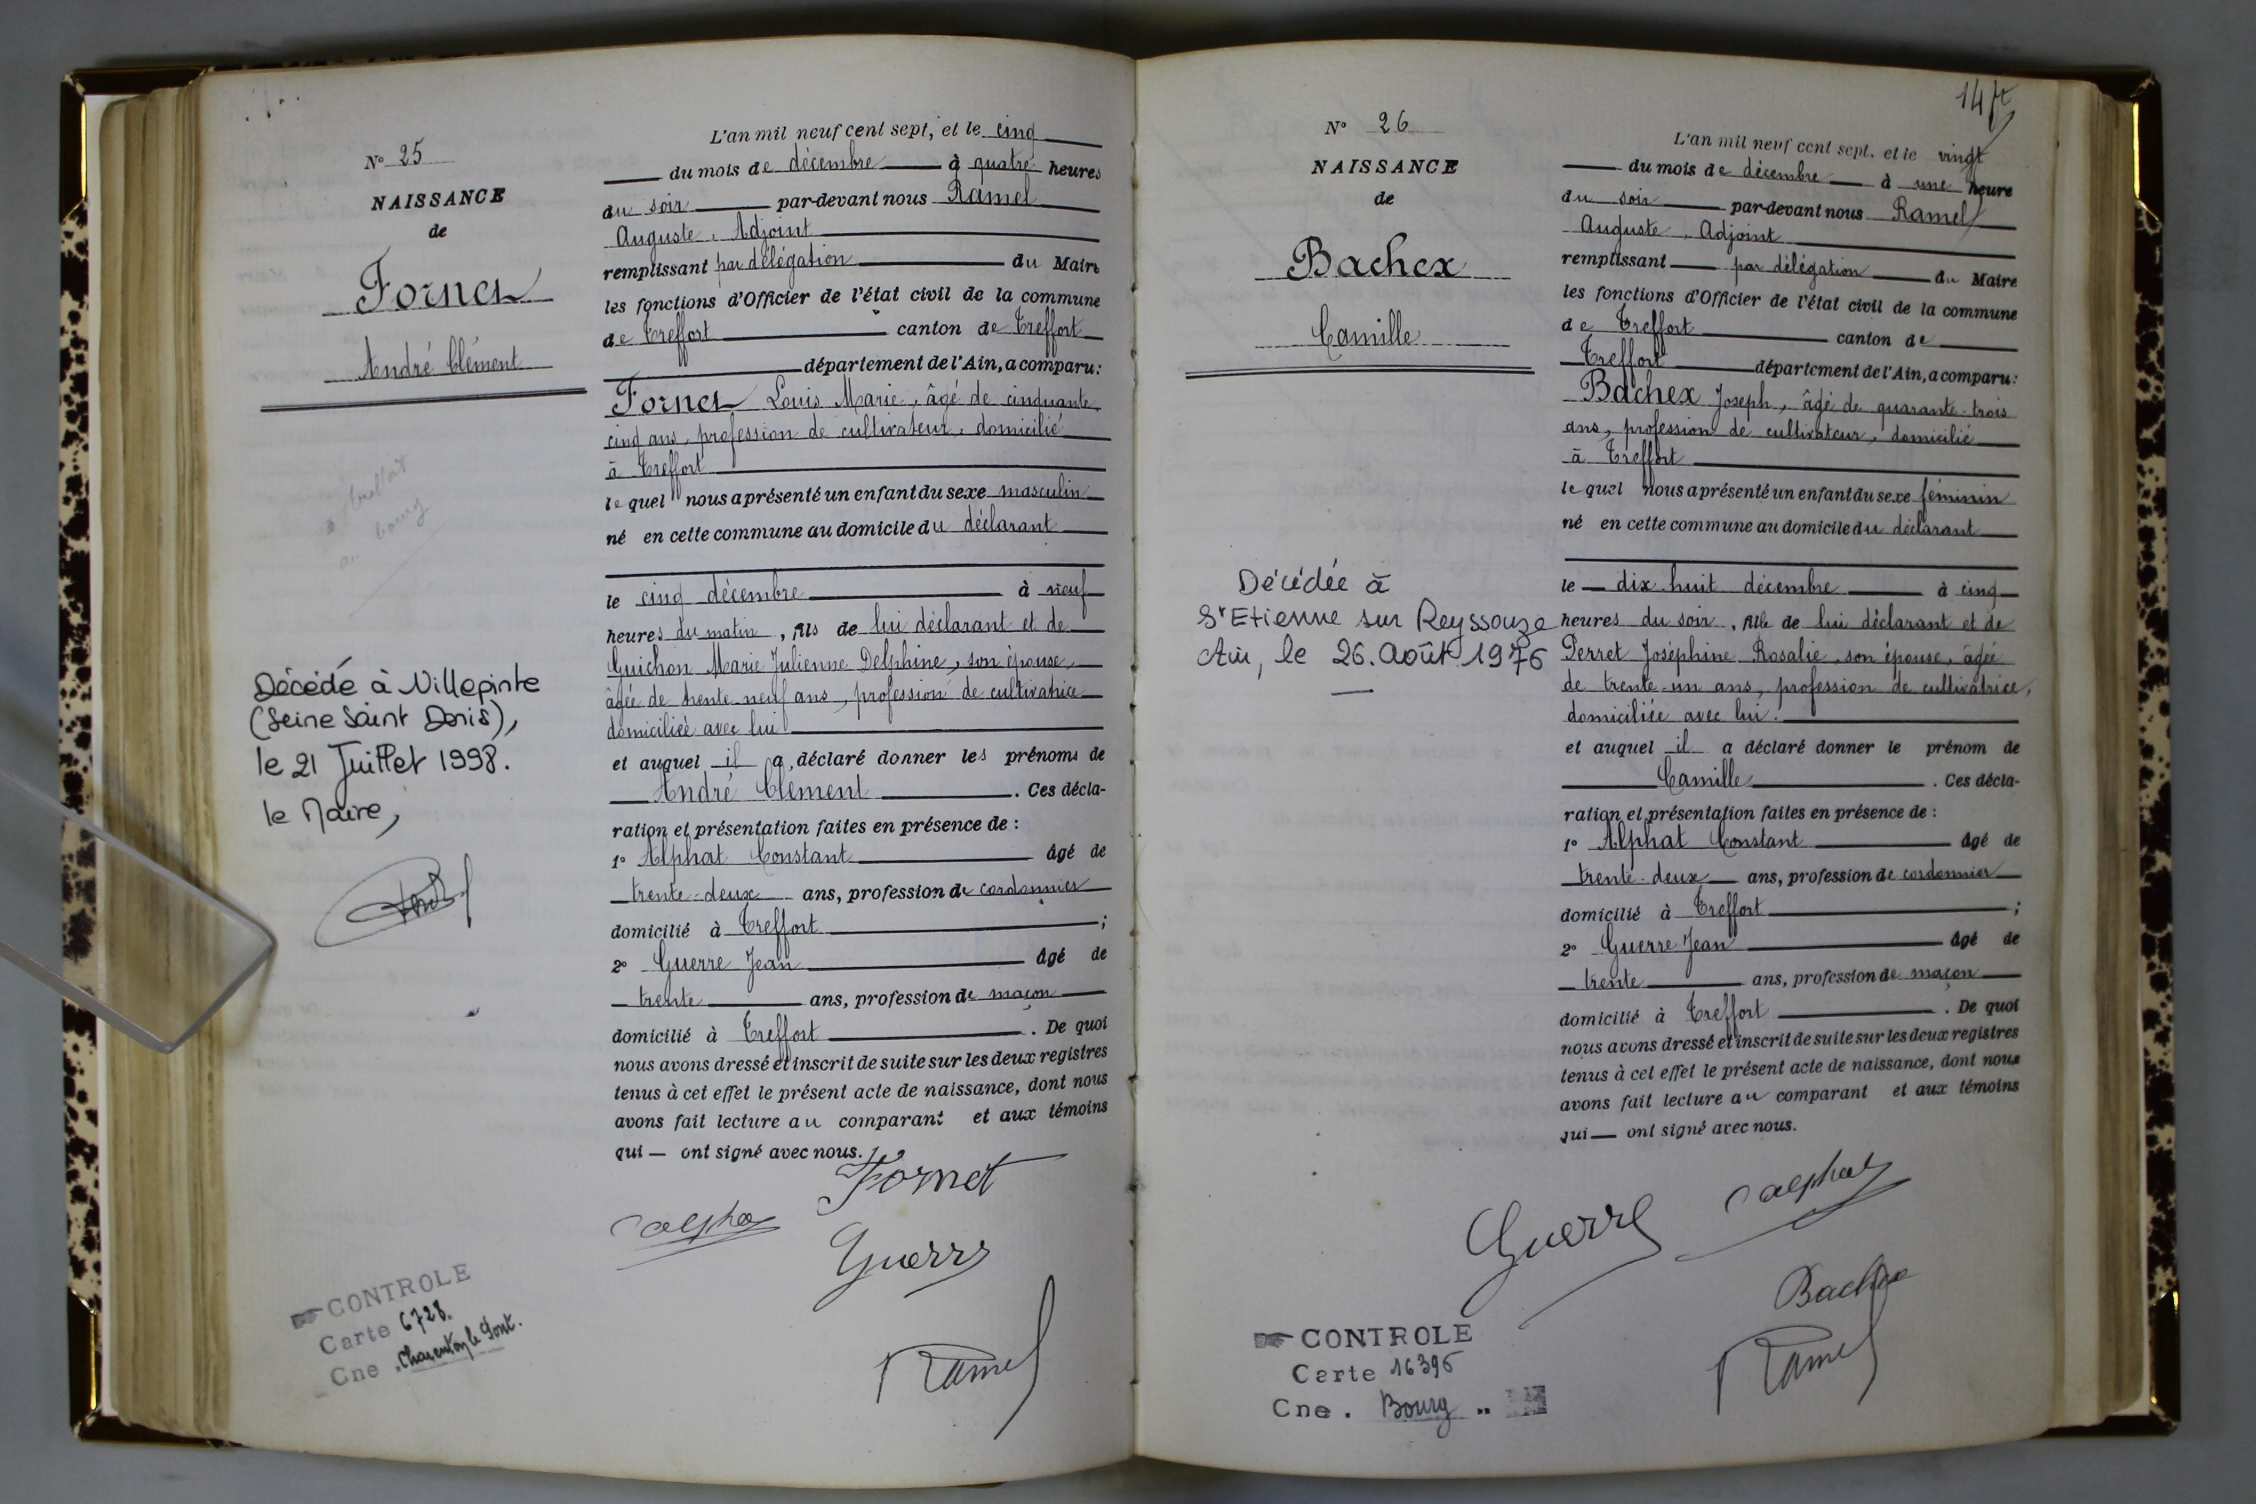 N° 25
NAISSANCE
de
Fornet
André Clément
Décédé à Villepinte
(Seine Saint Denis),
le 21 Juillet 1998.
le Maire,
CONTROLE
Carte 6728.
Cne . Charenton le Pont.
L'an mil neuf cent sept, et le cinq
du mois de décembre à quatre heures
du soir par-devant nous Ramel
Auguste, Adjoint
remplissant par délégation du Maire
les fonctions d'Officier de l'état civil de la commune
de Treffort canton de Treffort
département de l'Ain, a comparu:
Fornet Louis Marie, âgé de cinquante
cinq ans, profession de cultivateur, domicilié
à Treffort
lequel nous a présenté un enfant du sexe masculin
né en cette commune au domicile du déclarant
le cinq décembre à neuf
heures du matin, fils de lui déclarant et de
Guichon Marie Julienne Delphine, son épouse,
âgée de trente neuf ans, profession de cultivatrice
domiciliée avec lui
et auquel il a déclaré donner les prénoms de
André Clément . Ces décla-
ration et présentation faites en présence de :
1° Alphat Constant âgé de
trente-deux ans, profession de cordonnier
domicilié à Treffort ;
2° Guerre Jean âgé de
trente ans, profession de maçon
domicilié à Treffort . De quoi
nous avons dressé et inscrit de suite sur les deux registres
tenus à cet effet le présent acte de naissance, dont nous
avons fait lecture au comparant et aux témoins
qui — ont signé avec nous.
Fornet
Calphat
Guerre
Ramel
147
N° 26
NAISSANCE
de
Bachex
Camille
Décédée à
St Etienne sur Reyssouze
Ain, le 26. Août 1976
CONTROLE
Carte 16396
Cne . Bourg
L'an mil neuf cent sept, et le vingt
du mois de décembre à une heure
du soir par-devant nous Ramel
Auguste, Adjoint
remplissant par délégation du Maire
les fonctions d'Officier de l'état civil de la commune
de Treffort canton de
Treffort département de l'Ain, a comparu:
Bachex Joseph, âgé de quarante-trois
ans, profession de cultivateur, domicilié
à Treffort
lequel nous a présenté un enfant du sexe féminin
né en cette commune au domicile du déclarant
le — dix huit décembre à cinq
heures du soir, fille de lui déclarant et de
Perret Joséphine Rosalie, son épouse, âgée
de trente-un ans, profession de cultivatrice,
domiciliée avec lui.
et auquel il a déclaré donner le prénom de
Camille . Ces décla-
ration et présentation faites en présence de :
1° Alphat Constant âgé de
trente-deux ans, profession de cordonnier
domicilié à Treffort ;
2° Guerre Jean âgé de
trente ans, profession de maçon
domicilié à Treffort . De quoi
nous avons dressé et inscrit de suite sur les deux registres
tenus à cet effet le présent acte de naissance, dont nous
avons fait lecture au comparant et aux témoins
qui — ont signé avec nous.
Guerre
Calphat
Bachex
Ramel